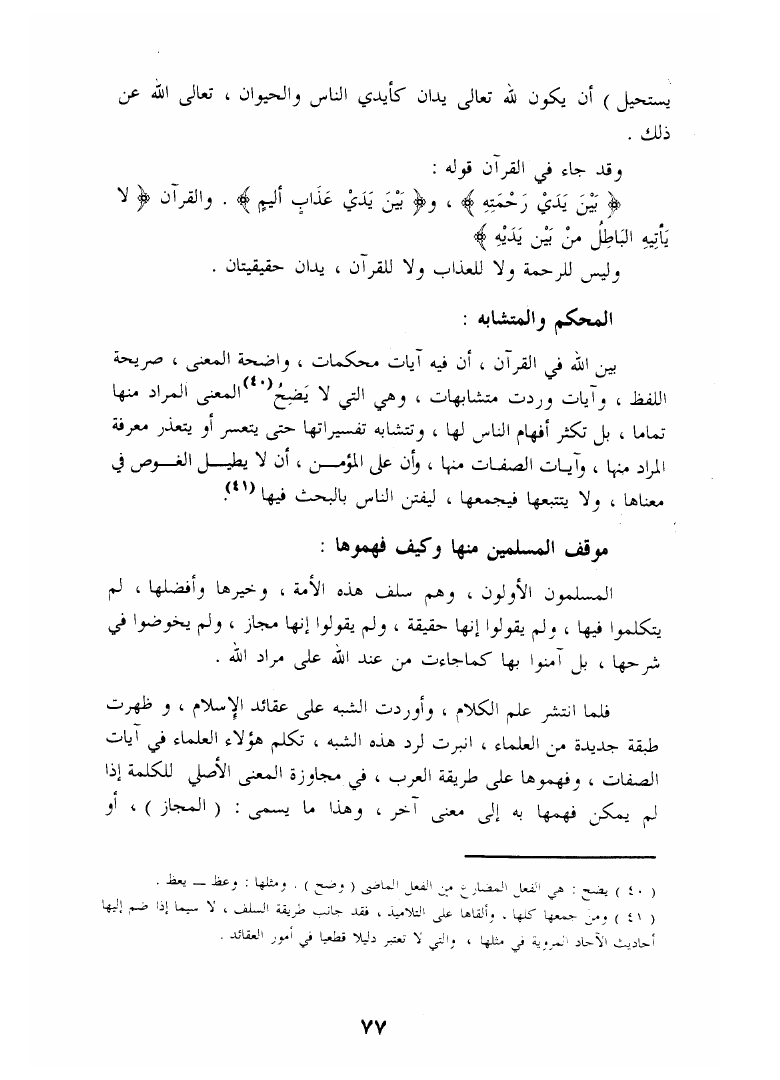 يستحيل ) أن يكون لله تعالى يدان كأيدي الناس والحيوان ، تعالى الله عن
ذلك .
وقد جاء في القرآن قوله :
﴿ بَيْنَ يَدَيْ رَحْمَتِهِ ﴾ ، و﴿ بَيْنَ يَدَيْ عَذَابٍ أليمٍ ﴾ . والقرآن ﴿ لا
يَأتِيهِ البَاطِلُ منْ بَيْن يَدَيْهِ ﴾
وليس للرحمة ولا للعذاب ولا للقرآن ، يدان حقيقيتان .
المحكم والمتشابه :
بين الله في القرآن ، أن فيه آيات محكمات ، واضحة المعنى ، صريحة
اللفظ ، وآيات وردت متشابهات ، وهي التي لا يَضِحُ(٤٠) المعنى المراد منها
تماما ، بل تكثر أفهام الناس لها ، وتتشابه تفسيراتها حتى يتعسر أو يتعذر معرفة
المراد منها ، وآيـات الصفـات منها ، وأن على المؤمـــن ، أن لا يطيـــل الغـــوص في
معناها ، ولا يتتبعها فيجمعها ، ليفتن الناس بالبحث فيها (٤١).
موقف المسلمين منها وكيف فهموها :
المسلمون الأولون ، وهم سلف هذه الأمة ، وخيرها وأفضلها ، لم
يتكلموا فيها ، ولم يقولوا إنها حقيقة ، ولم يقولوا إنها مجاز ، ولم يخوضوا في
شرحها ، بل آمنوا بها كماجاءت من عند الله على مراد الله .
فلما انتشر علم الكلام ، وأوردت الشبه على عقائد الإسلام ، و ظهرت
طبقة جديدة من العلماء ، انبرت لرد هذه الشبه ، تكلم هؤلاء العلماء في آيات
الصفات ، وفهموها على طريقة العرب ، في مجاوزة المعنى الأصلي للكلمة إذا
لم يمكن فهمها به إلى معنى آخر ، وهذا ما يسمى : ( المجاز ) ، أو
( ٤٠ ) يضح : هي الفعل المضارع من الفعل الماضى ( وضح ) . ومثلها : وعظ ــ يعظ .
( ٤١ ) ومن جمعها كلها ، وألقاها على التلاميذ ، فقد جانب طريقة السلف ، لا سيما إذا ضم إليها
أحاديث الآحاد المروية في مثلها ، والتي لا تعتبر دليلا قطعيا في أمور العقائد .
٧٧